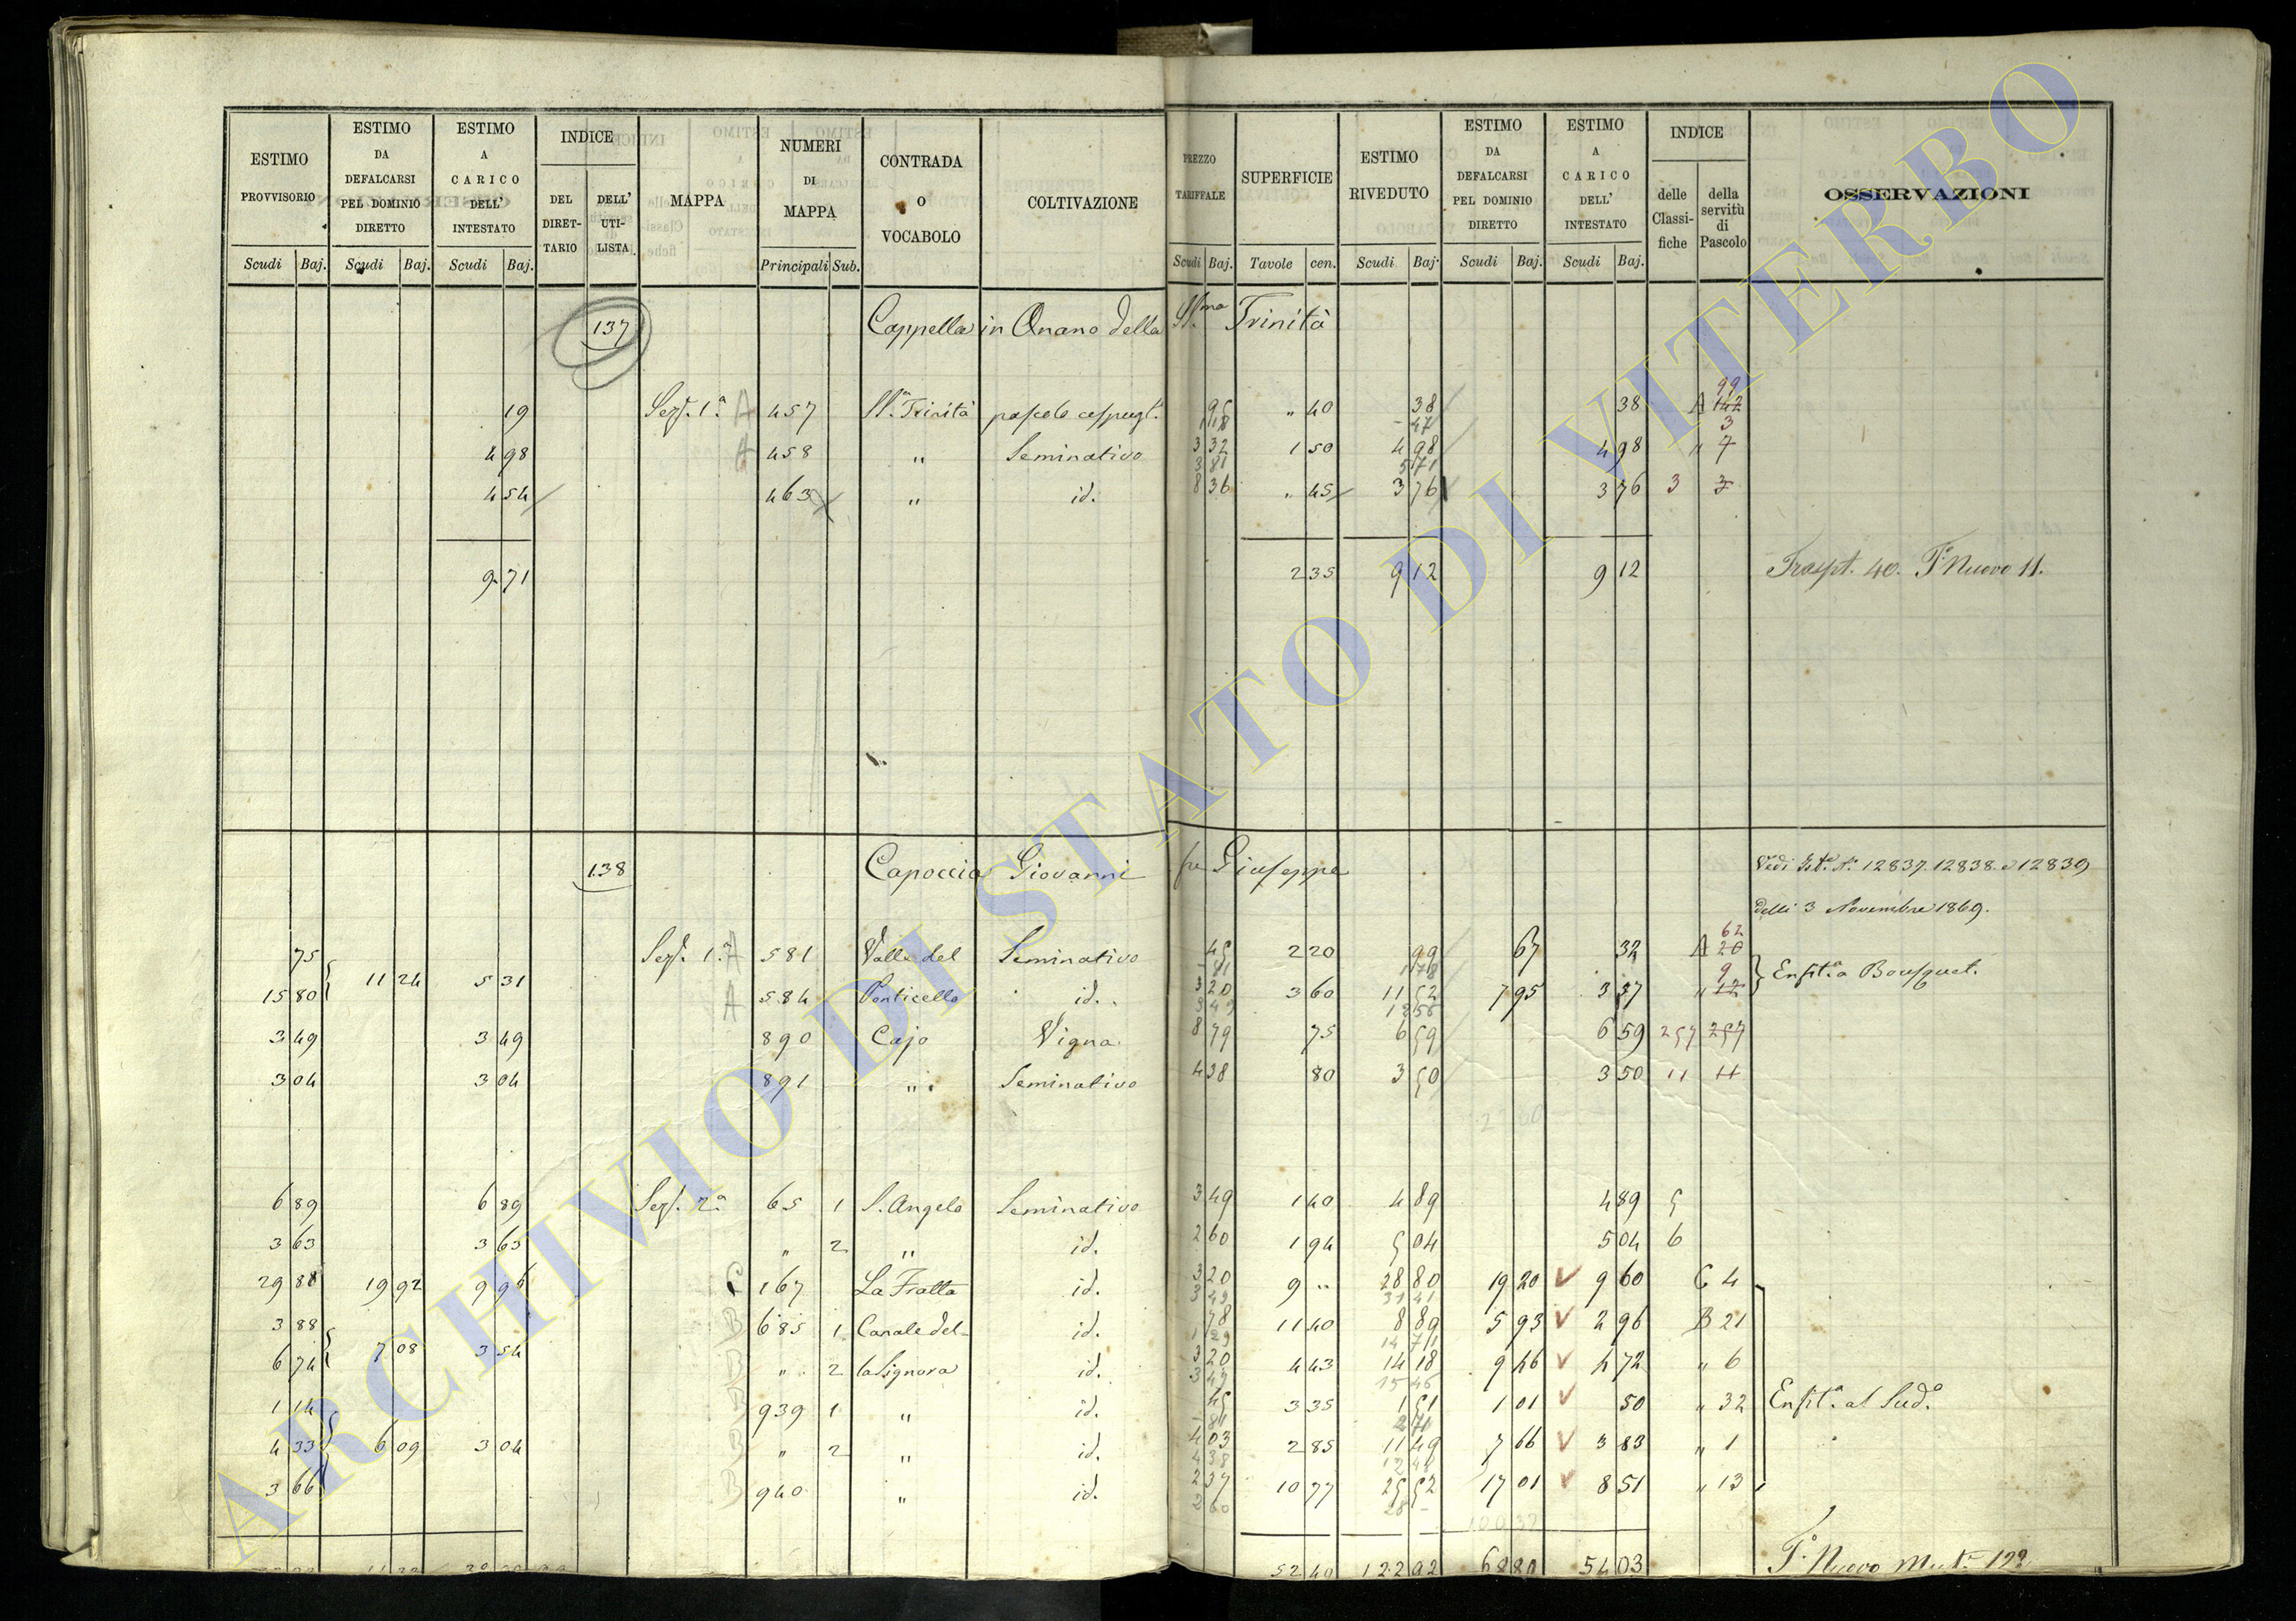 ESTIMO PROVVISORIO
ESTIMO DA DEFALCARSI PEL DOMINIO DIRETTO
ESTIMO A CARICO DELL' INTESTATO
INDICE
DEL DIRET-TARIO
DELL' UTI-LISTA
MAPPA
NUMERI DI MAPPA
CONTRADA O VOCABOLO
COLTIVAZIONE
PREZZO TARIFFALE
SUPERFICIE
ESTIMO RIVEDUTO
ESTIMO DA DEFALCARSI PEL DOMINIO DIRETTO
ESTIMO A CARICO DELL' INTESTATO
INDICE
delle Classi-fiche
della servitù di Pascolo
OSSERVAZIONI
Scudi Baj. Scudi Baj. Scudi Baj. Principali Sub. Scudi Baj. Tavole cen. Scudi Baj. Scudi Baj. Scudi Baj.
137 Cappella in Onano della SS.ma Trinità
99
19 Sez. 1.a A 457 SS.a Trinità pascolo cespugl.o 95 " 40 38 38 A 142
1 18 - 47 3
4 98 A 458 " Seminativo 3 32 1 50 4 98 4 98 " 7
3 81 5 71
4 54 463 " id. 8 36 " 45 3 76 3 76 3 3
9 71 2 35 9 12 9 12 Traspt. 40. T.o Nuovo 11.
138 Capoccia Giovanni fu Giuseppe Vedi N.i 12837. 12838. e 12839
delli 3 Novembre 1869.
62
75 Sez. 1.a A 581 Valle del Seminativo 45 2 20 99 67 32 A 20
11 24 5 31 - 81 1 78 9 Enfit.a a Bousquet.
15 80 A 584 Ponticello id. 3 20 3 60 11 52 7 95 3 57 " 12
3 49 12 56
3 49 3 49 890 Cajo Vigna 8 79 75 6 59 6 59 257 257
3 04 3 04 891 " Seminativo 4 38 80 3 50 3 50 11 11
6 89 6 89 Sez. 2.a 65 1 S. Angelo Seminativo 3 49 1 40 4 89 4 89 5
3 63 3 63 " 2 " id. 2 60 1 94 5 04 5 04 6
29 88 19 92 9 96 C 167 La Fratta id. 3 20 9 " 28 80 19 20 V 9 60 C 4
3 49 31 41
3 88 B 685 1 Canale del- id. 78 11 40 8 89 5 93 V 2 96 B 21
7 08 3 54 1 29 14 71
6 74 B " 2 la Signora id. 3 20 4 43 14 18 9 46 V 4 72 " 6
3 49 15 46
1 14 B 939 1 " id. 45 3 35 1 51 1 01 V 50 " 32 Enfit.a al Sud.o
- 81 2 71
4 33 6 09 3 04 B " 2 " id. 4 03 2 85 11 49 7 66 V 3 83 " 1
4 38 12 48
3 66 B 940 " id. 2 37 10 77 25 52 17 01 V 8 51 " 13
2 60 28 -
52 49 122 92 68 89 54 03 T.o Nuovo Mut.e 122
ARCHIVIO DI STATO DI VITERBO